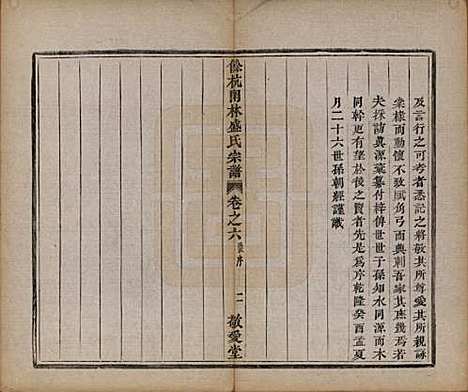 及言行之可考者悉記之將敬其所尊愛其所親詠
棠棣而動懷不致賦角弓而興刺吾家其庶幾焉若
夫採訪眞源彙纂付梓俾世世子孫知水同源而木
同幹更有望於後之賢者先是爲序乾隆癸酉孟夏
月二十六世孫朝經謹識
餘杭閑林盛氏宗譜
卷之六
序
二
敬愛堂